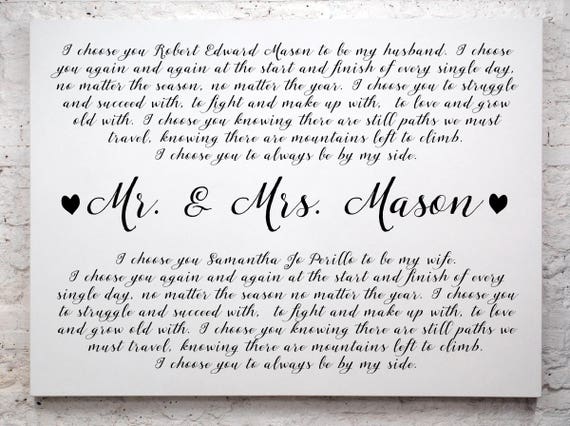 I choose you Robert Edward Mason to be my husband. I choose
you again and again at the start and finish of every single day,
no matter the season, no matter the year. I choose you to struggle
and succeed with, to fight and make up with, to love and grow
old with. I choose you knowing there are still paths we must
travel, knowing there are mountains left to climb.
I choose you to always be by my side.
Mr. & Mrs. Mason
I choose you Samantha Jo Perillo to be my wife.
I choose you again and again at the start and finish of every
single day, no matter the season no matter the year. I choose you
to struggle and succeed with, to fight and make up with, to love
and grow old with. I choose you knowing there are still paths we
must travel, knowing there are mountains left to climb.
I choose you to always be by my side.